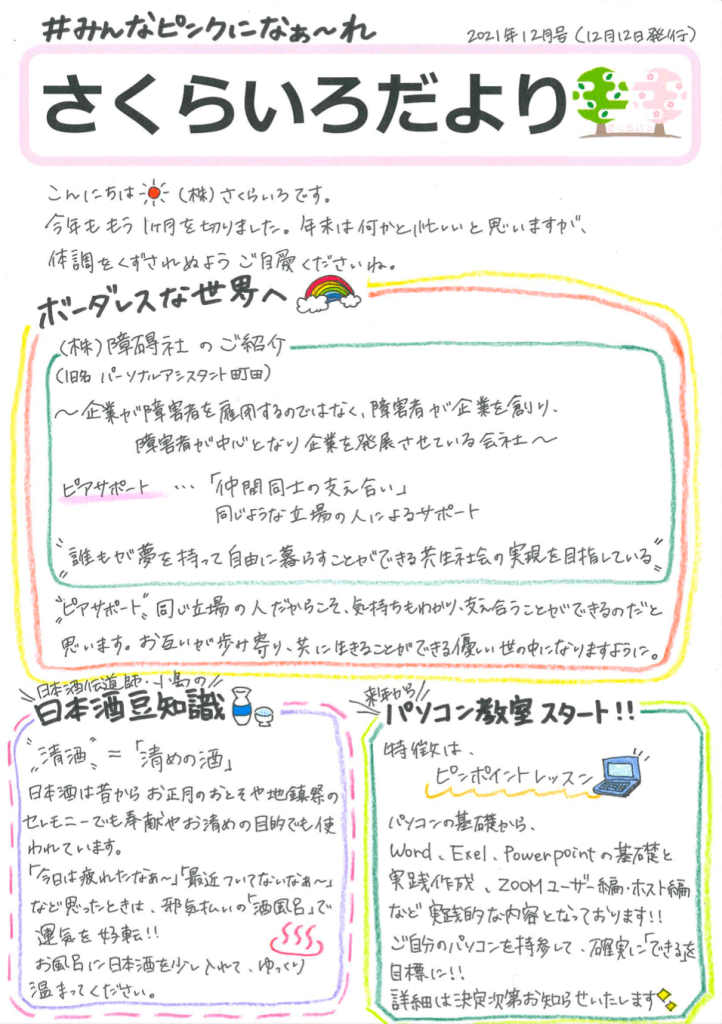 #みんなピンクになぁ〜れ
2021年12月号(12月12日発行)
さくらいろだより
さくらいろ
こんにちは (株)さくらいろです。
今年ももう1ヶ月を切りました。年末は何かと忙しいと思いますが、
体調をくずされぬようご自愛くださいね。
ボーダレスな世界へ
(株)障碍社 のご紹介
(旧名 パーソナルアシスタント町田)
〜企業が障害者を雇用するのではなく、障害者が企業を創り、
障害者が中心となり企業を発展させている会社〜
ピアサポート … 「仲間同士の支え合い」
同じような立場の人によるサポート
〝誰もが夢を持って自由に暮らすことができる共生社会の実現を目指している〟
〝ピアサポート〟同じ立場の人だからこそ、気持ちもわかり、支え合うことができるのだと
思います。お互いが歩み寄り、共に生きることができる優しい世の中になりますように。
日本酒伝道師・小島の
日本酒豆知識
〝清酒〟=「清めの酒」
日本酒は昔からお正月のおとそや地鎮祭の
セレモニーでも奉献やお清めの目的でも使
われています。
「今日は疲れたなぁ〜」「最近ついてないなぁ〜」
など思ったときは、邪気払いの「酒風呂」で
運気を好転!!
お風呂に日本酒を少し入れて、ゆっくり
温まってください。
来年から
パソコン教室スタート!!
特徴は、
ピンポイントレッスン
パソコンの基礎から、
Word、Exel、Powerpointの基礎と
実践作成、ZOOMユーザー編・ホスト編
など実践的な内容となっております!!
ご自分のパソコンを持参して、確実に「できる」を
目標に!!
詳細は決定次第お知らせいたします